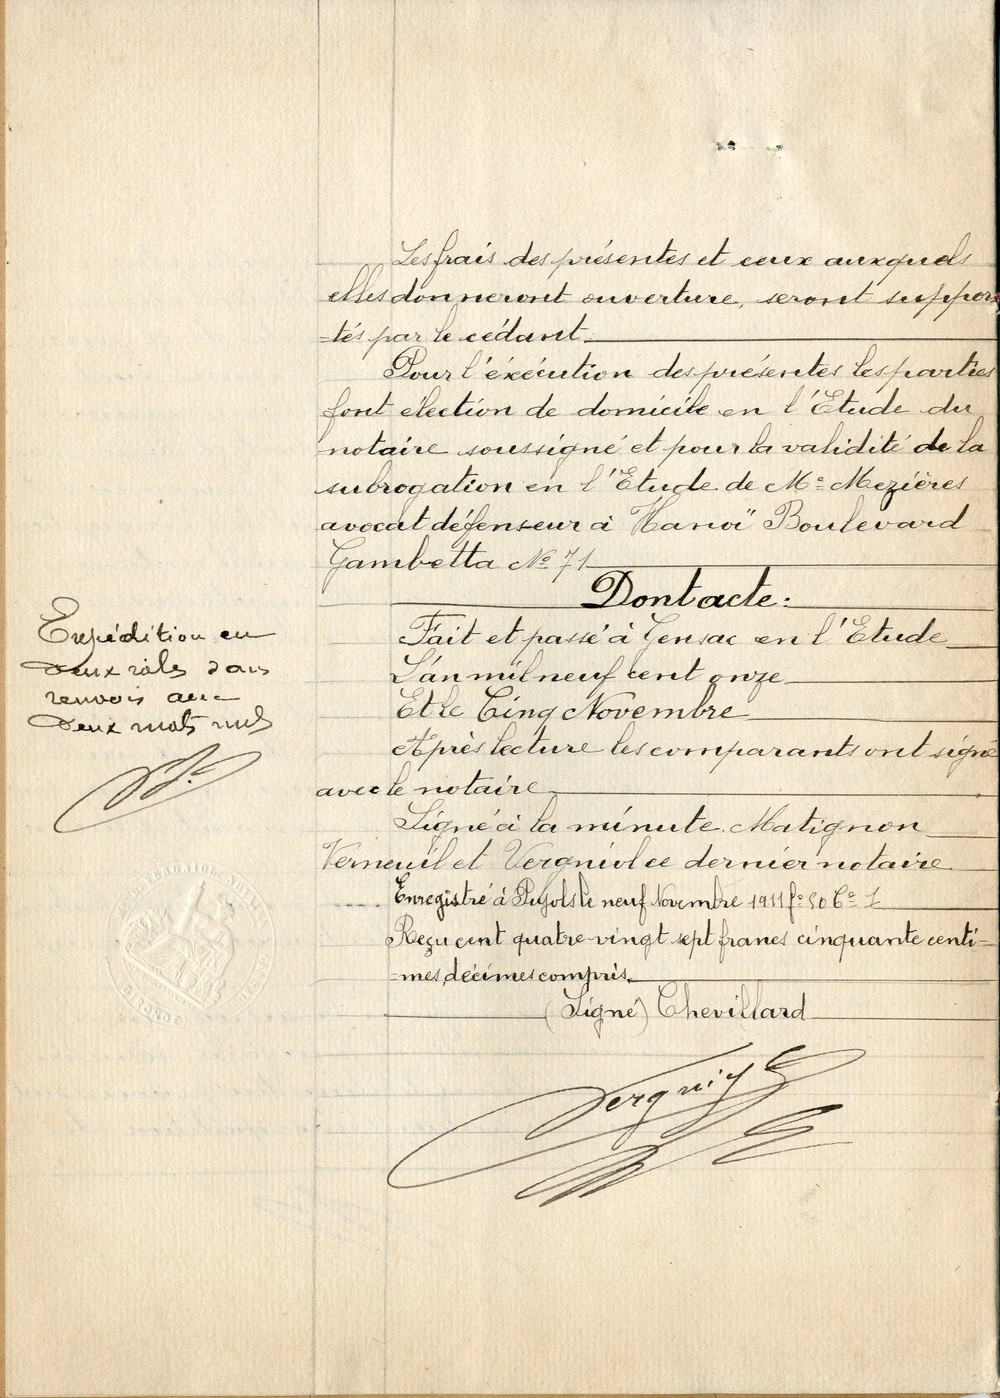 Les frais des présentes et ceux auxquels
elles donneront ouverture, seront suppor
-tés par le cédant.
Pour l'éxécution des présentes les parties
font élection de domicile en l'Etude du
notaire soussigné et pour la validité de la
subrogation en l'Etude de Me Mezières
avocat défenseur à Hanoï Boulevard
Gambetta No 71
Dont acte:
Fait et passé à Gensac en l'Etude
L'an mil neuf cent onze
Et le Cinq Novembre
Après lecture les comparants ont signé
avec le notaire
Signé à la minute. Matignon
Verneuil et Vergniol ce dernier notaire
Enregistré à Pujols le neuf Novembre 1911 fo 50 Co 1
Reçu cent quatre-vingt sept francs cinquante centi-
-mes, décimes compris.
(Signé) Chevillard
Vergniol
Expédition en
deux rôles sans
renvois avec
deux mots nuls